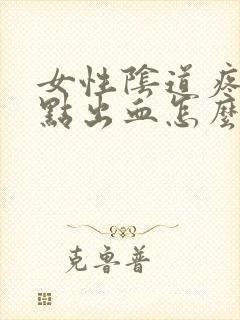 女性陰道疼
點出血怎麼
克魯普